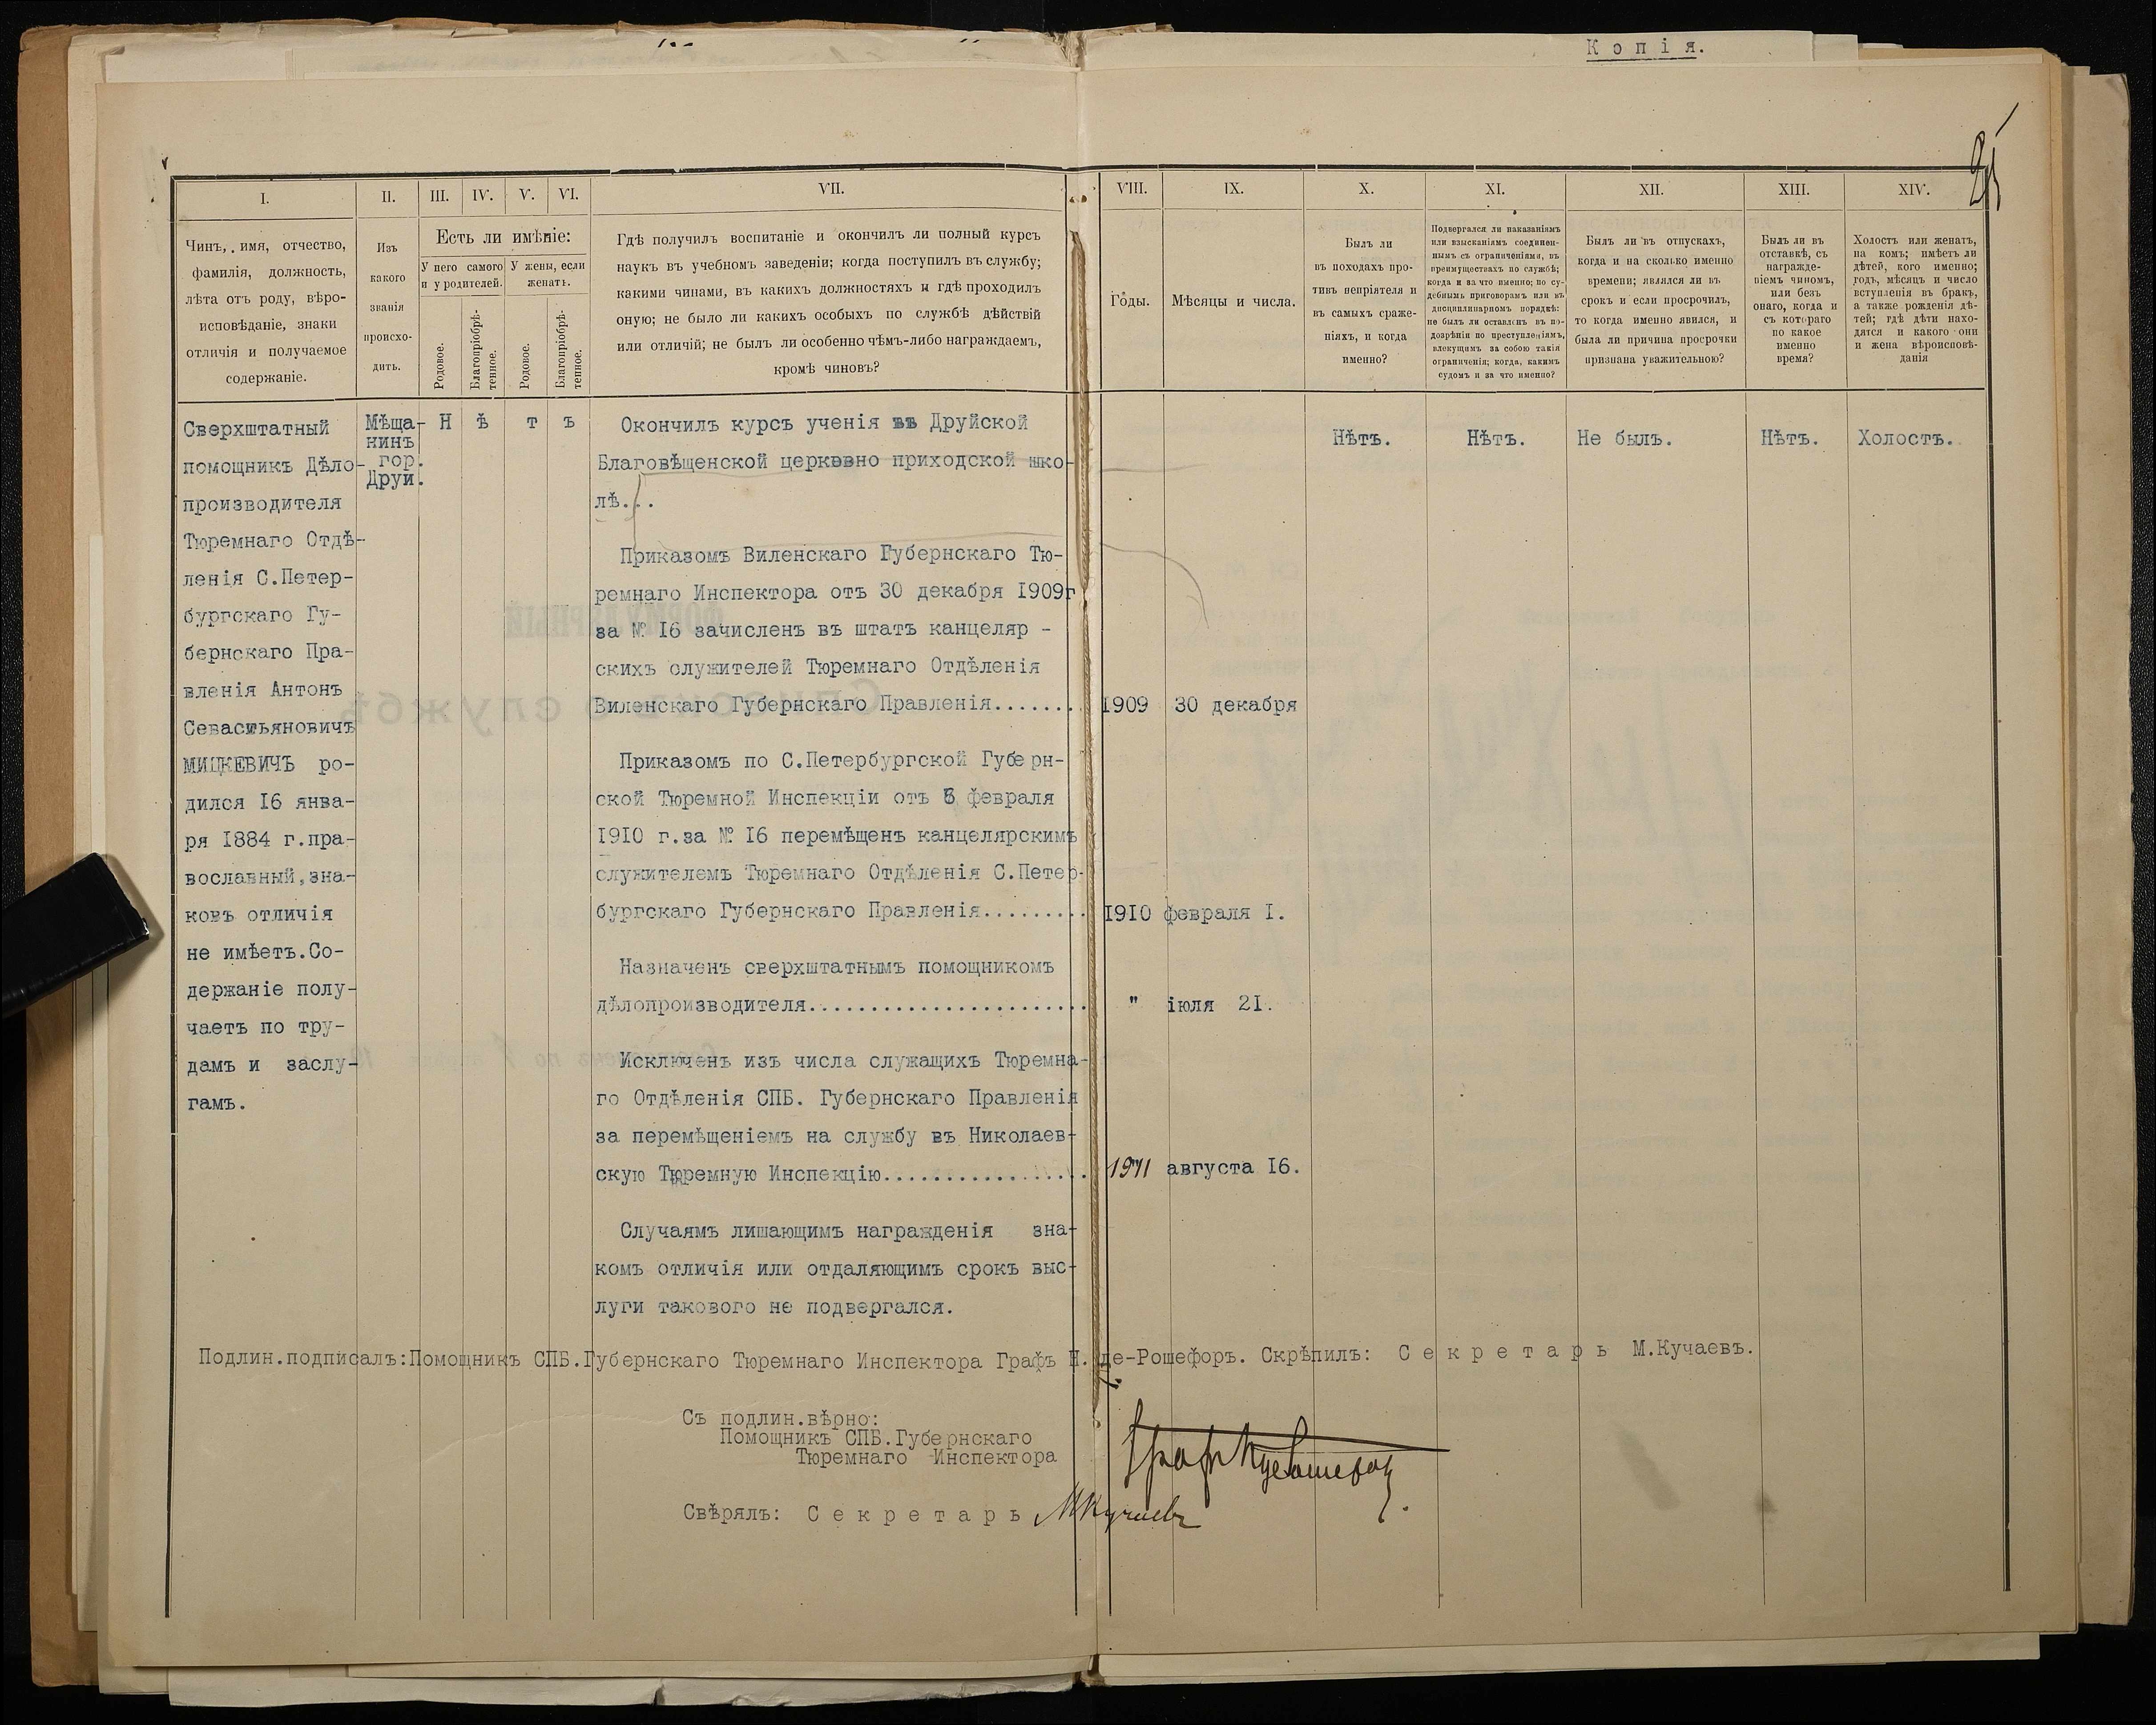 Копія.
25
I.
II.
III.
IV.
V.
VI.
VII.
VIII.
IX.
X.
XI.
XII.
XIII.
XIV.
Чинъ, имя, отчество,
фамилія, должность,
лѣта отъ роду, вѣро-
исповѣданіе, знаки
отличія и получаемое
содержаніе.
Изъ
какого
званія
происхо-
дитъ.
Есть ли имѣніе:
У него самого
и у родителей.
У жены, если
женатъ.
Родовое.
Благопріобрѣ-
тенное.
Родовое.
Благопріобрѣ-
тенное.
Гдѣ получилъ воспитаніе и окончилъ ли полный курсъ
наукъ въ учебномъ заведеніи; когда поступилъ въ службу;
какими чинами, въ какихъ должностяхъ и гдѣ проходилъ
оную; не было ли какихъ особыхъ по службѣ дѣйствій
или отличій; не былъ ли особенно чѣмъ-либо награждаемъ,
кромѣ чиновъ?
Годы.
Мѣсяцы и числа.
Былъ ли
въ походахъ про-
тивъ непріятеля и
въ самыхъ сраже-
ніяхъ, и когда
именно?
Подвергался ли наказаніямъ
или взысканіямъ соединен-
нымъ съ ограниченіями, въ
преимуществахъ по службѣ;
когда и за что именно; по су-
дебнымъ приговорамъ или въ
дисциплинарномъ порядкѣ:
не былъ ли оставленъ въ по-
дозрѣніи по преступленіямъ,
влекущимъ за собою такія
ограниченія; когда, какимъ
судомъ и за что именно?
Былъ ли въ отпускахъ,
когда и на сколько именно
времени; являлся ли въ
срокъ и если просрочилъ,
то когда именно явился, и
была ли причина просрочки
признана уважительною?
Былъ ли въ
отставкѣ, съ
награжде-
ніемъ чиномъ,
или безъ
онаго, когда и
съ котораго
по какое
именно
время?
Холостъ или женатъ,
на комъ; имѣетъ ли
дѣтей, кого именно;
годъ, мѣсяцъ и число
вступленія въ бракъ,
а также рожденія дѣ-
тей; гдѣ дѣти нахо-
дятся и какого они
и жена вѣроисповѣ-
данія
Сверхштатный
помощникъ Дѣло-
производителя
Тюремнаго Отдѣ-
ленія С.Петер-
бургскаго Гу-
бернскаго Пра-
вленія Антонъ
Севастьяновичъ
МИЦКЕВИЧЪ ро-
дился 16 янва-
ря 1884 г.пра-
вославный,зна-
ковъ отличія
не имѣетъ.Со-
держаніе полу-
чаетъ по тру-
дамъ и заслу-
гамъ.
Мѣща-
нинъ
гор.
Друи.
Н ѣ т ъ
Окончилъ курсъ ученія въ Друйской
Благовѣщенской церковно приходской шко-
лѣ...
Приказомъ Виленскаго Губернскаго Тю-
ремнаго Инспектора отъ 30 декабря 1909г
за № 16 зачисленъ въ штатъ канцеляр -
скихъ служителей Тюремнаго Отдѣленія
Виленскаго Губернскаго Правленія........ 1909 30 декабря
Приказомъ по С.Петербургской Губерн-
ской Тюремной Инспекціи отъ 5 февраля
1910 г.за № 16 перемѣщенъ канцелярскимъ
служителемъ Тюремнаго Отдѣленія С.Петер-
бургскаго Губернскаго Правленія......... 1910 февраля I.
Назначенъ сверхштатнымъ помощникомъ
дѣлопроизводителя....................... " іюля 21.
Исключенъ изъ числа служащихъ Тюремна-
го Отдѣленія СПБ. Губернскаго Правленія
за перемѣщеніемъ на службу въ Николаев-
скую Тюремную Инспекцію................. 1911 августа 16.
Случаямъ лишающимъ награжденія зна-
комъ отличія или отдаляющимъ срокъ выс-
луги такового не подвергался.
Нѣтъ.
Нѣтъ.
Не былъ.
Нѣтъ.
Холостъ.
Подлин.подписалъ:Помощникъ СПБ.Губернскаго Тюремнаго Инспектора Графъ Н. де-Рошефоръ. Скрѣпилъ: С е к р е т а р ь М.Кучаевъ.
Съ подлин.вѣрно:
Помощникъ СПБ.Губернскаго
Тюремнаго Инспектора
Свѣрялъ: С е к р е т а р ь МКучаевъ